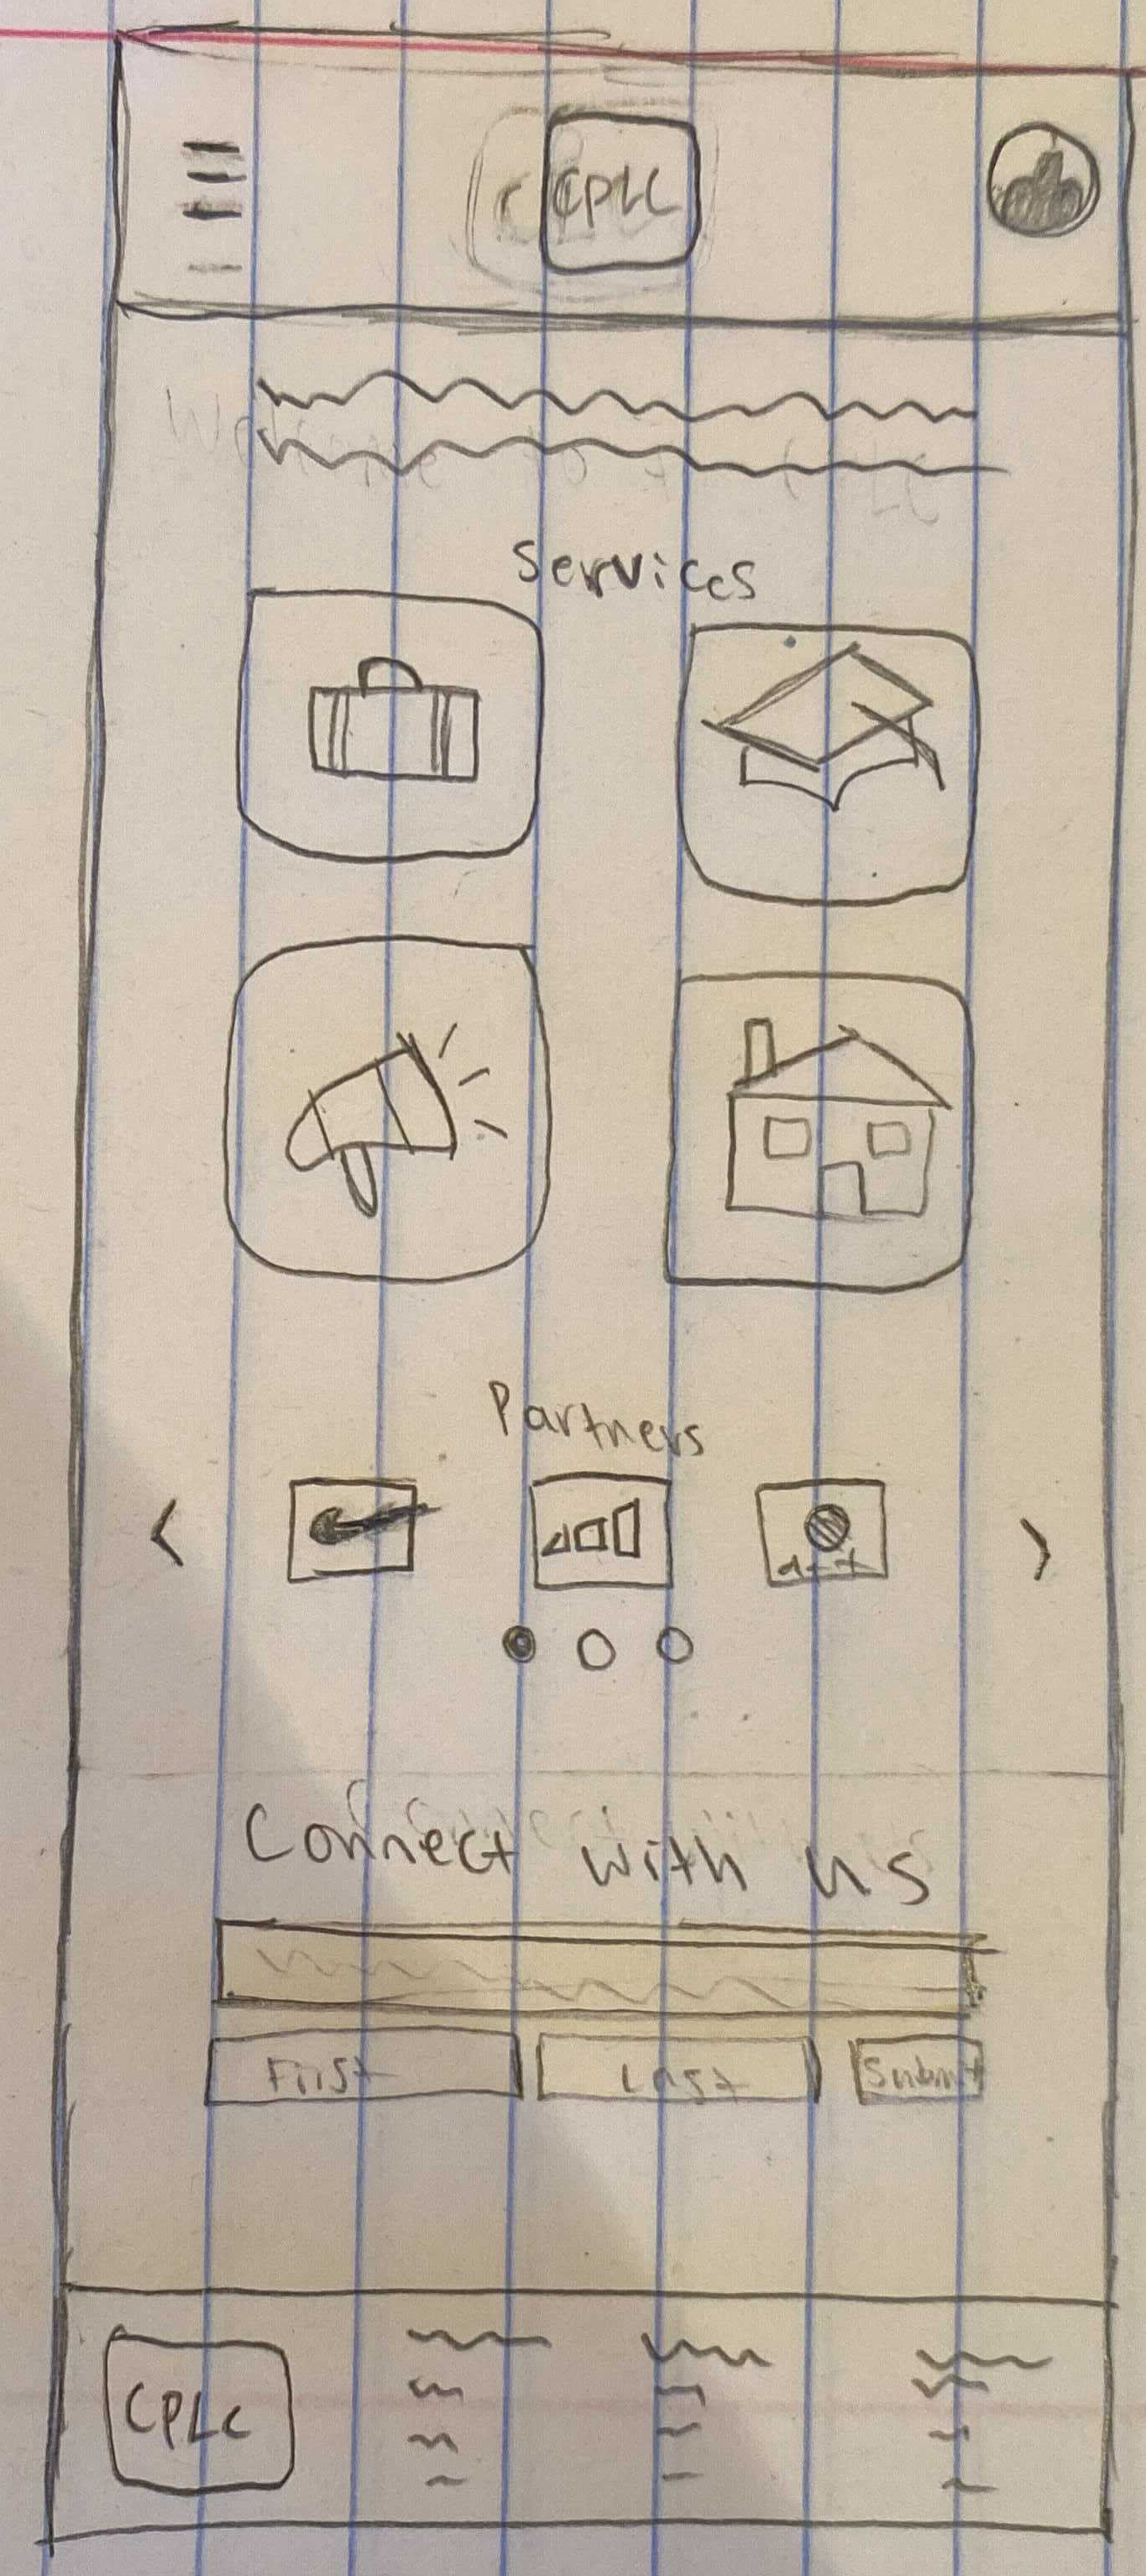 CPLC
Services
Partners
Connect with us
First Last Submit
CPLC